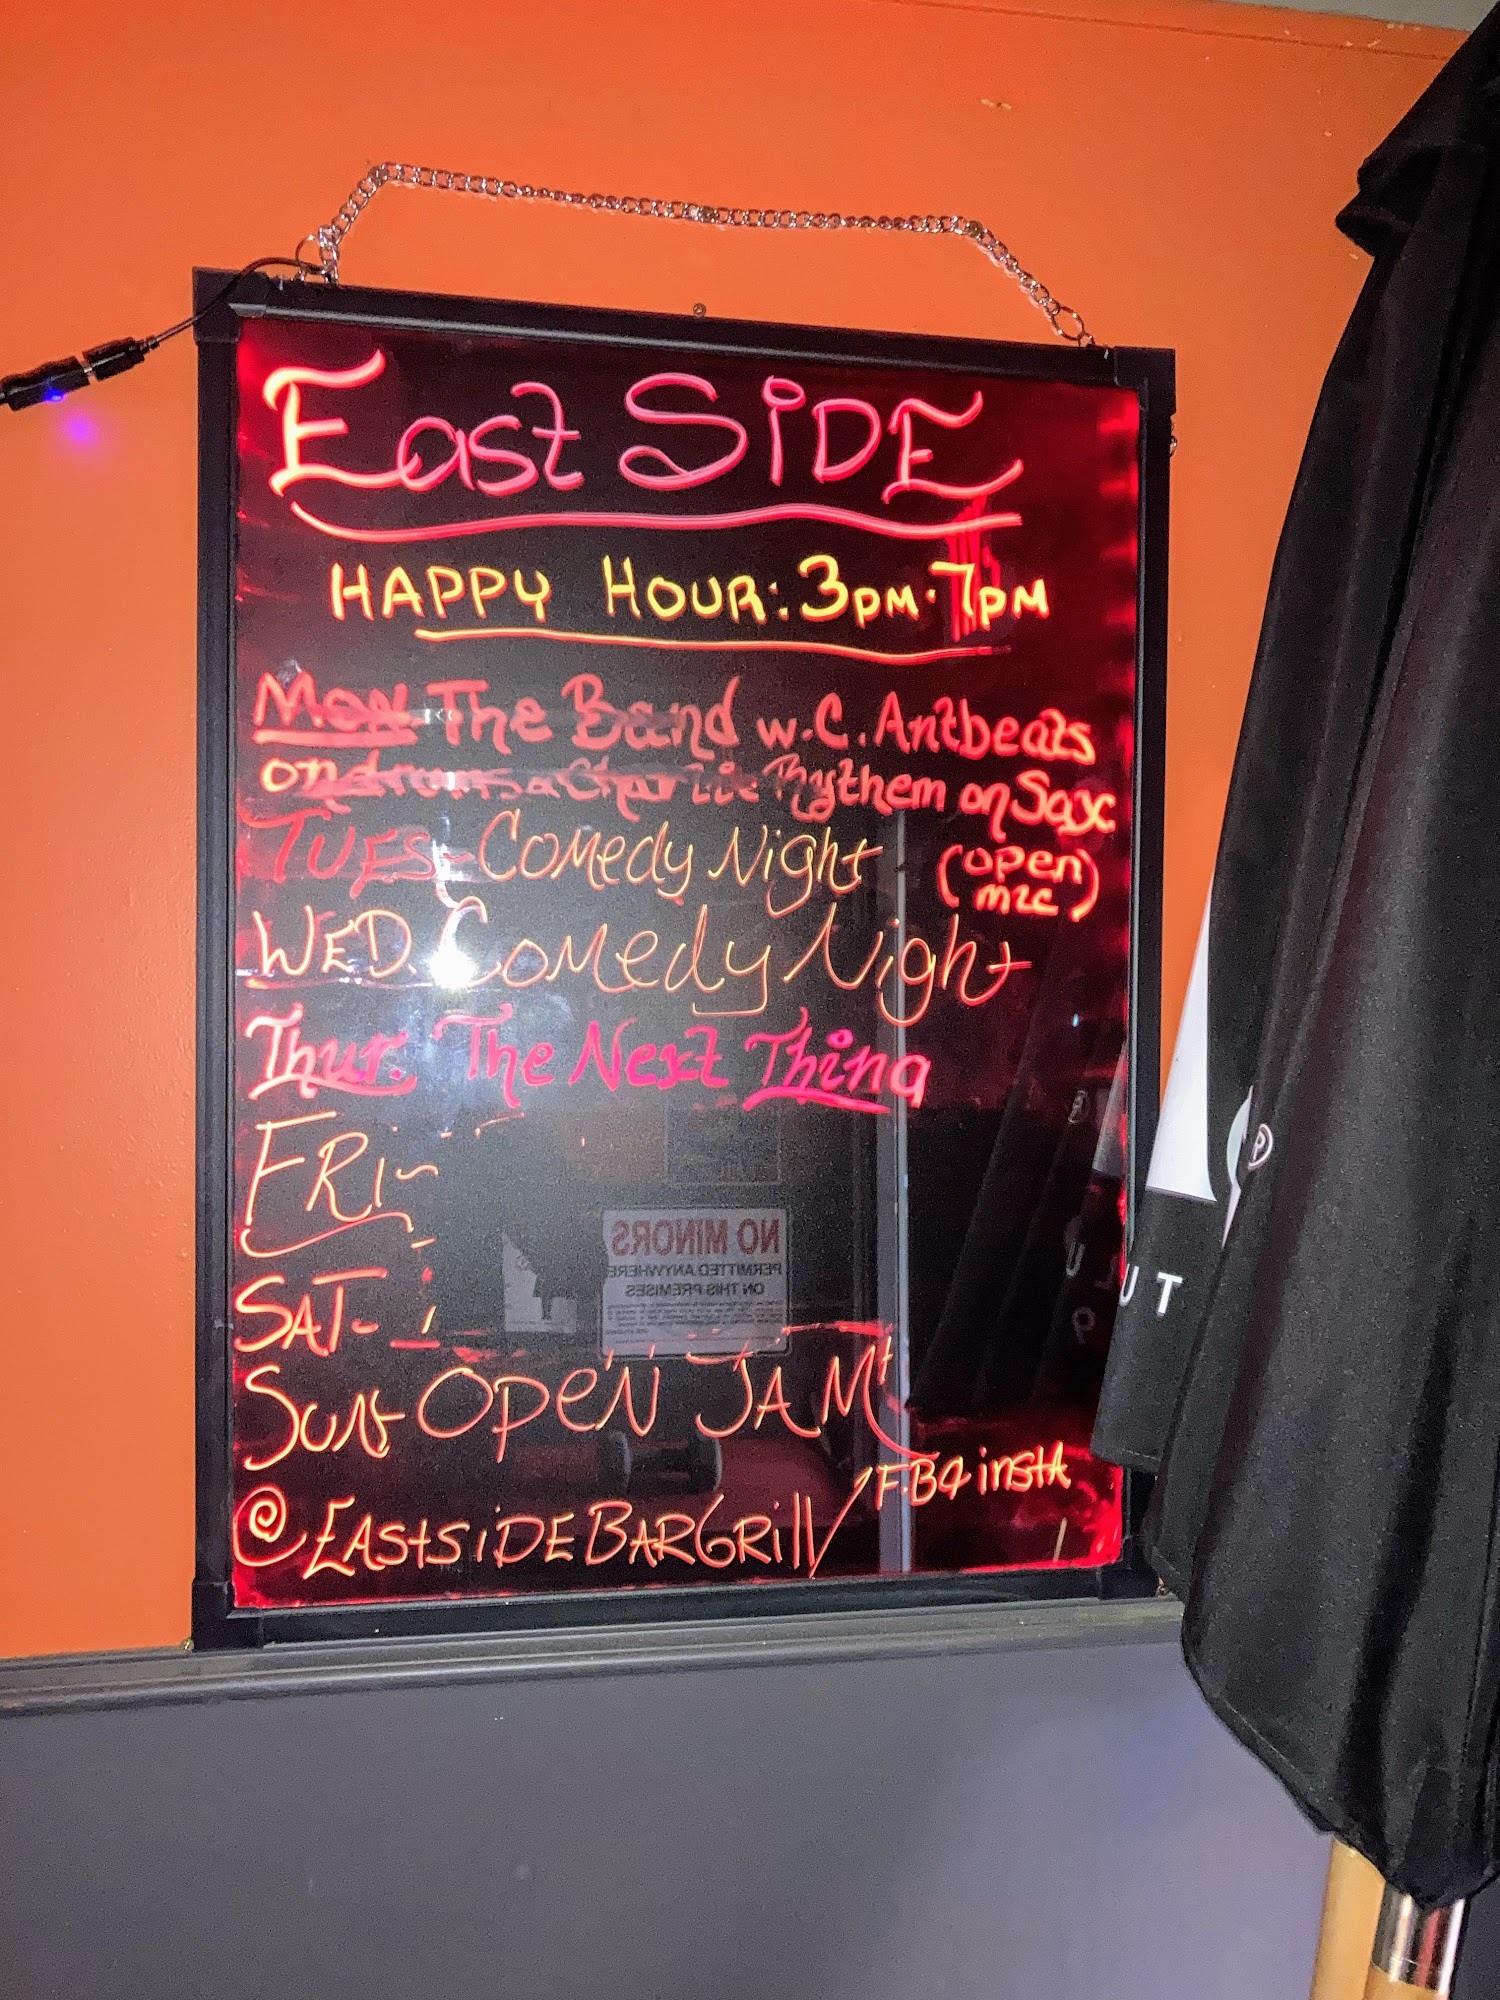 East SiDE
HAPPY HOUR: 3PM-7PM
Mon. The Band w. C. Antbeats
on drums & Charlie Rythem on Sax
TUES- Comedy Night (open mic)
WED. Comedy Night
Thur. The Next Thing
FRI-
SAT-
Sun- OPEN JAM
@EAStSiDEBARGRill / F.B & instA
NO MINORS
PERMITTED ANYWHERE
ON THIS PREMISES
UT
®